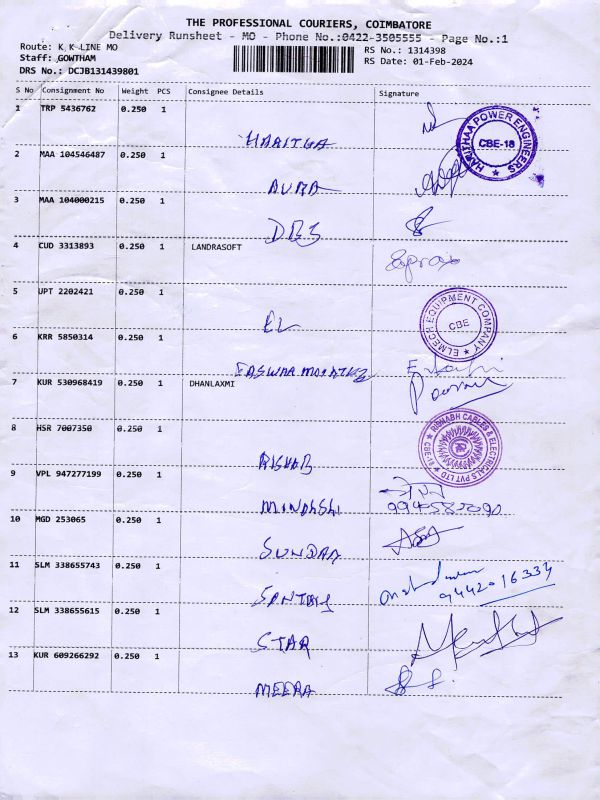 THE PROFESSIONAL COURIERS, COIMBATORE
Delivery Runsheet - MO - Phone No.:0422-3505555 - Page No.:1
Route: K K LINE MO
RS No.: 1314398
Staff: GOWTHAM
RS Date: 01-Feb-2024
DRS No.: DCJB131439801
S No Consignment No Weight PCS Consignee Details Signature
1 TRP 5436762 0.250 1
HARITHA
HARITHAA POWER ENGINEERS
CBE-18
2 MAA 104546487 0.250 1
AURA
3 MAA 104000215 0.250 1
DBS
4 CUD 3313893 0.250 1 LANDRASOFT
5 UPT 2202421 0.250 1
EL
ELMECH EQUIPMENT COMPANY
CBE
6 KRR 5850314 0.250 1
7 KUR 530968419 0.250 1 DHANLAXMI
8 HSR 7007350 0.250 1
RISHAB
RISHABH CABLES & ELECTRICALS PVT LTD
9 VPL 947277199 0.250 1
10 MGD 253065 0.250 1
SUNDAR
11 SLM 338655743 0.250 1
9442016334
12 SLM 338655615 0.250 1
STAR
13 KUR 609266292 0.250 1
MEERA